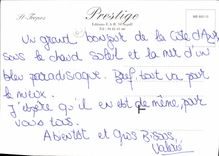 St-Tropez
Prestige
Un grand bonjour de la Côte d'Azur
sous le chaud soleil et la mer d'un
bleu paradisiaque. Bref tout va pour
le mieux.
J'espère qu'il en est de même, pour
vous tous.
A bientôt et gros Bisous,
Valérie